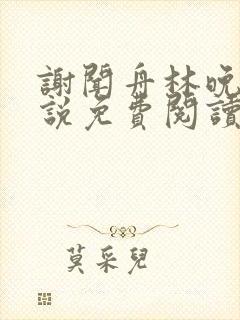 謝聞舟林晚
說免費閱讀
莫采兒